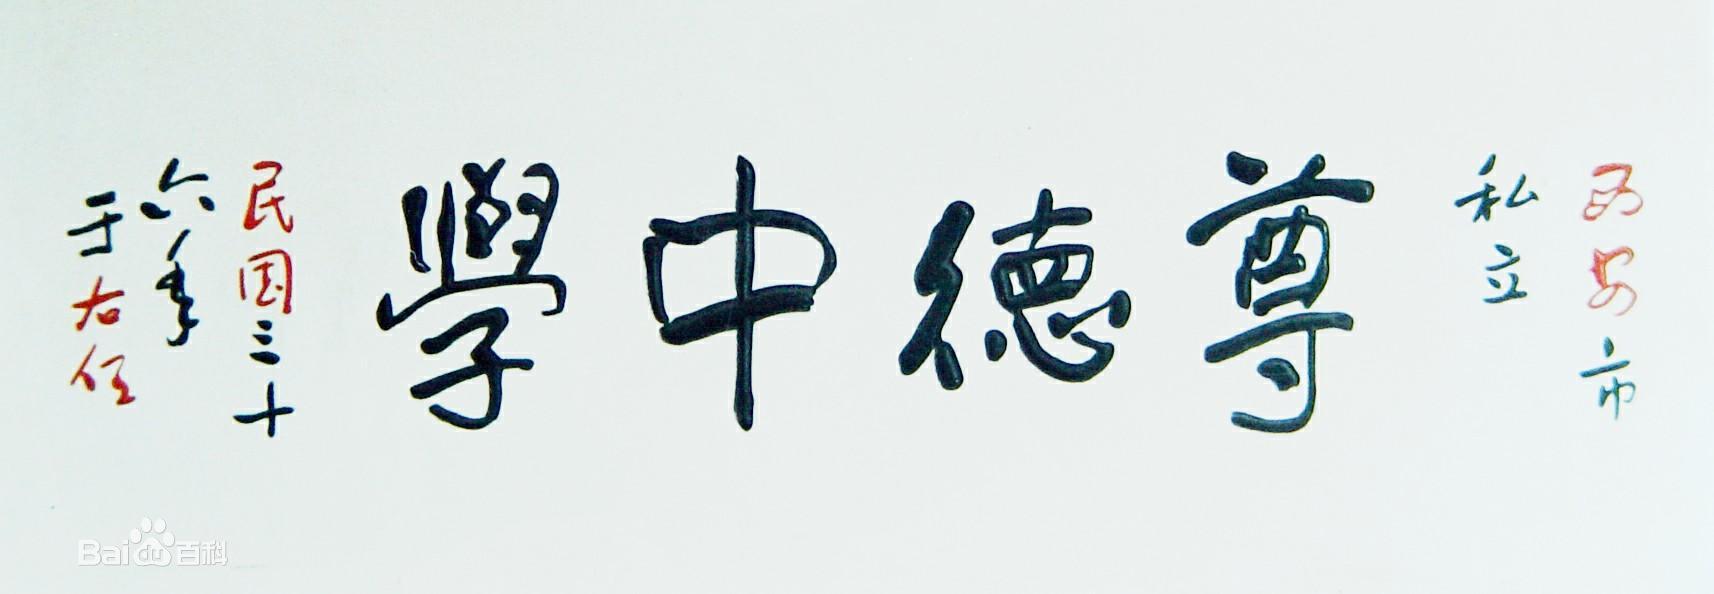 西安市
私立
尊德中學
民国三十
六年
于右任
Bai du 百科